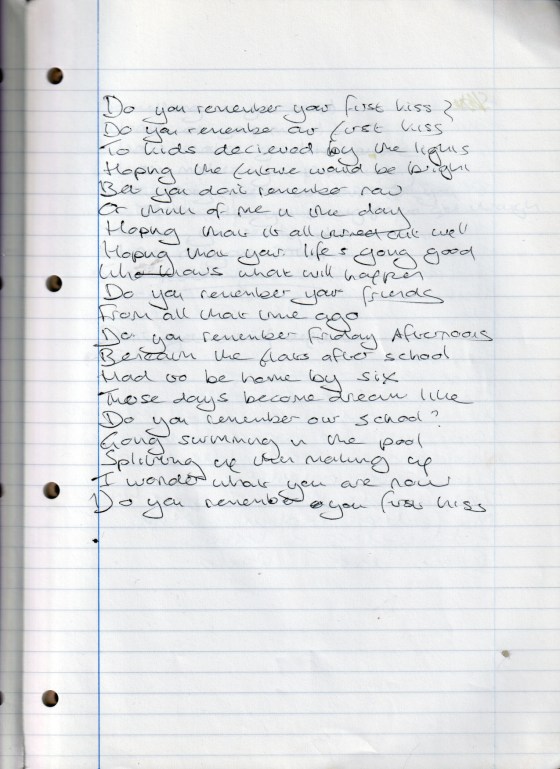 Do you remember your first kiss?
Do you remembe our first kiss
To kids decieved by the lights
Hoping the future would be bright
Bet you don't remember now
Or think of me in the day
Hoping that it all turned out well
Hoping that your life's going good
Who knows what will happen
Do you remember your friends
From all that time ago
Do you remember Friday Afternoons
Beneath the flats after school
Had to be home by six
Those days become dream like
Do you remember our school?
Going swimming in the pool
Splitting up then making up
I wonder what you are now
Do you remember you first kiss